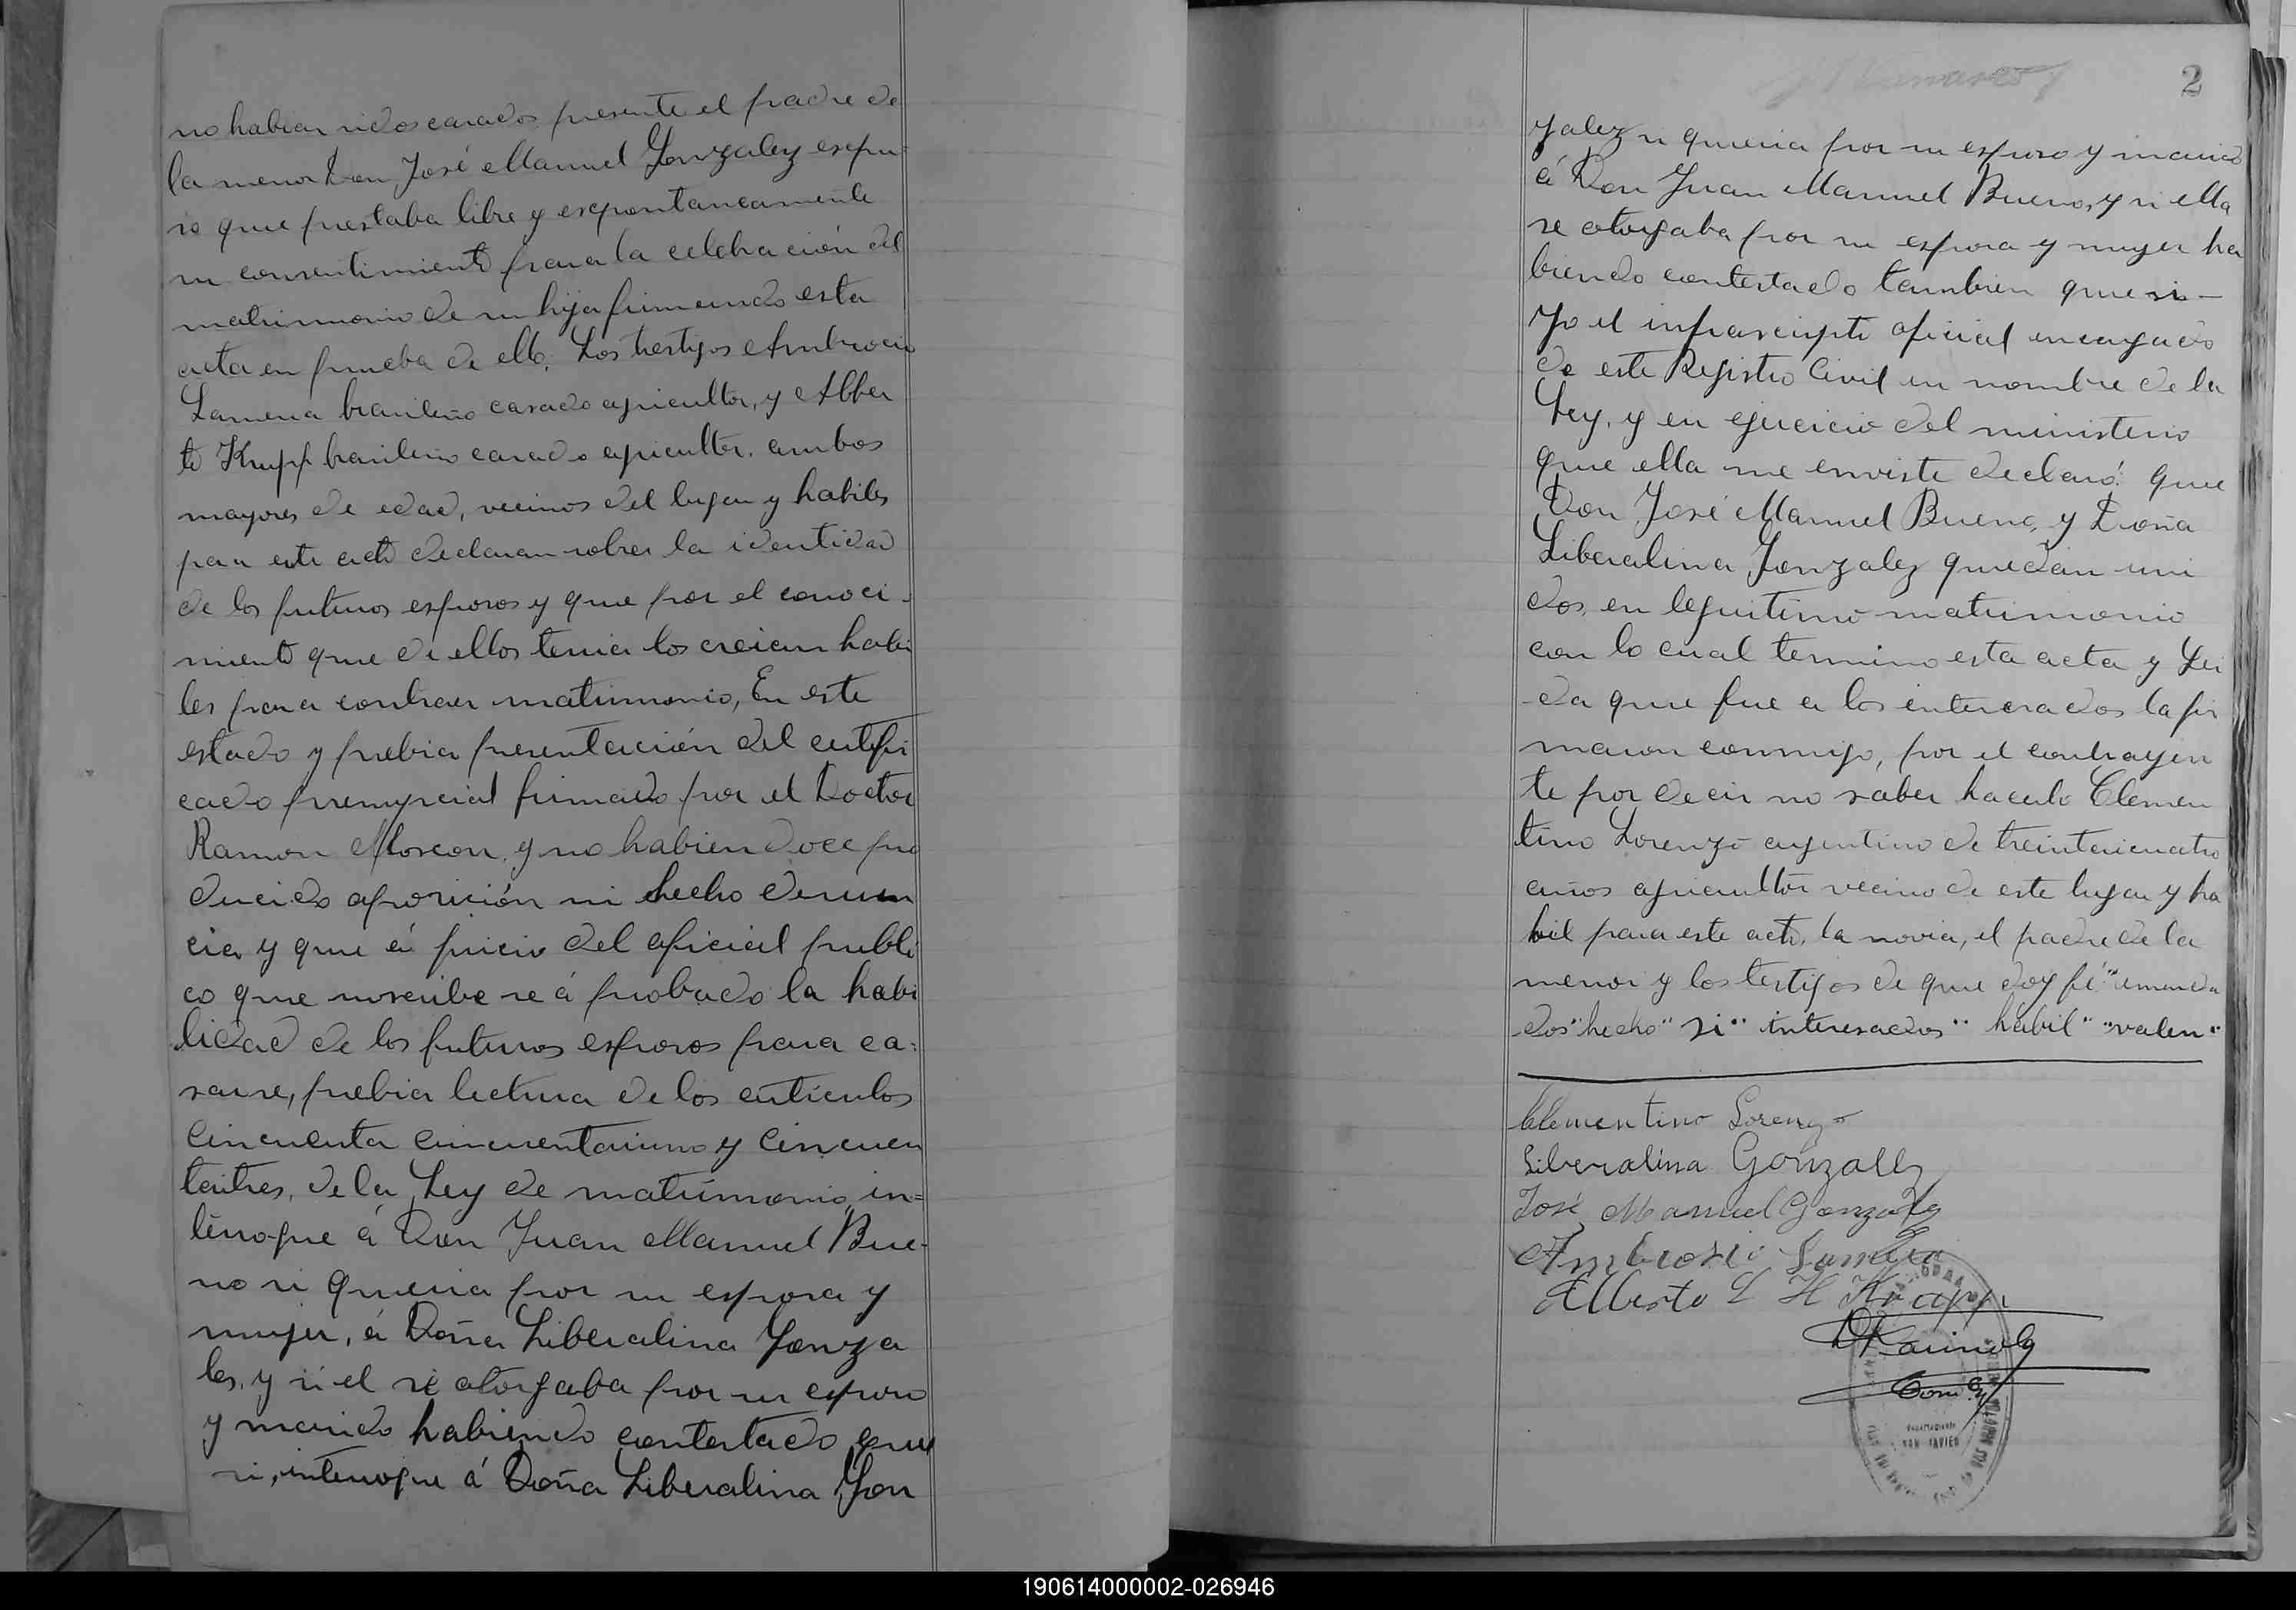 no habian sidos casados presente el padre de
la menor Don José Manuel Gonzalez expu-
so que prestaba libre y espontaneamente
su consentimiento para la celebración del
matrimonio de su hija firmando esta
acta en prueba de ello. Los testigos Ambrocio
Lamera brasileño casado agricultor, y Alber
to Krapp brasileño casado agricultor. ambos
mayores de edad, vecinos del lugar y habiles
para este acto declaran sobre la identidad
de los futuros esposos y que por el conoci-
miento que de ellos tenia los creian habi
les para contraer matrimonio, En este
estado y prebia presentación del certifi
cado prenupcial firmado por el Doctor
Ramon y no habiendoce pro
ducido oposición ni hecho denun
cia y que á juicio del oficial publi
co que suscribe se á probado la habi
lidad de los futuros esposos para ca-
sarse, prebia lectura de los artículos
Cincuenta cincuentaiuno y Cincuen
taitres, de la Ley de matrimonio in=
terrogue á Don Juan Manuel Bue-
no si queria por su esposa y
mujer, á Doña Liberalina Gonza
les, y si el se otorgaba por su esposo
y marido habiendo contestado que
si, interrogue á Doña Liberalina Gon
2
zalez si queria por su esposo y marido
á Don Juan Manuel Bueno, y si ella
se otorgaba por su esposa y mujer ha
biendo contestado tambien que si-
Yo el infrascripto oficial encargado
de este Registro Civil en nombre de la
Ley, y en ejercicio del ministerio
que ella me enviste declaró: que
Don José Manuel Bueno, y Doña
Liberalina Gonzalez quedan uni
dos, en legitimo matrimonio
con lo cual termino esta acta y Lei
da que fue a los interesados la fir
maron conmigo, por el contrayen
te por decir no saber hacerlo Clemen
tino Lorenzo argentino de treintaicuatro
años agricultor vecino de este lugar y ha
bil para este acto, la novia, el padre de la
menor y los testigos de que doy fé "emenda
dos "hecho" si" interesados" habil" "valen"
Clementino Lorenzo
Liberalina Gonzalez
José Manuel Gonzalez
Ambrosio Lamera
Alberto L H Krapp
SAN JAVIER
190614000002-026946